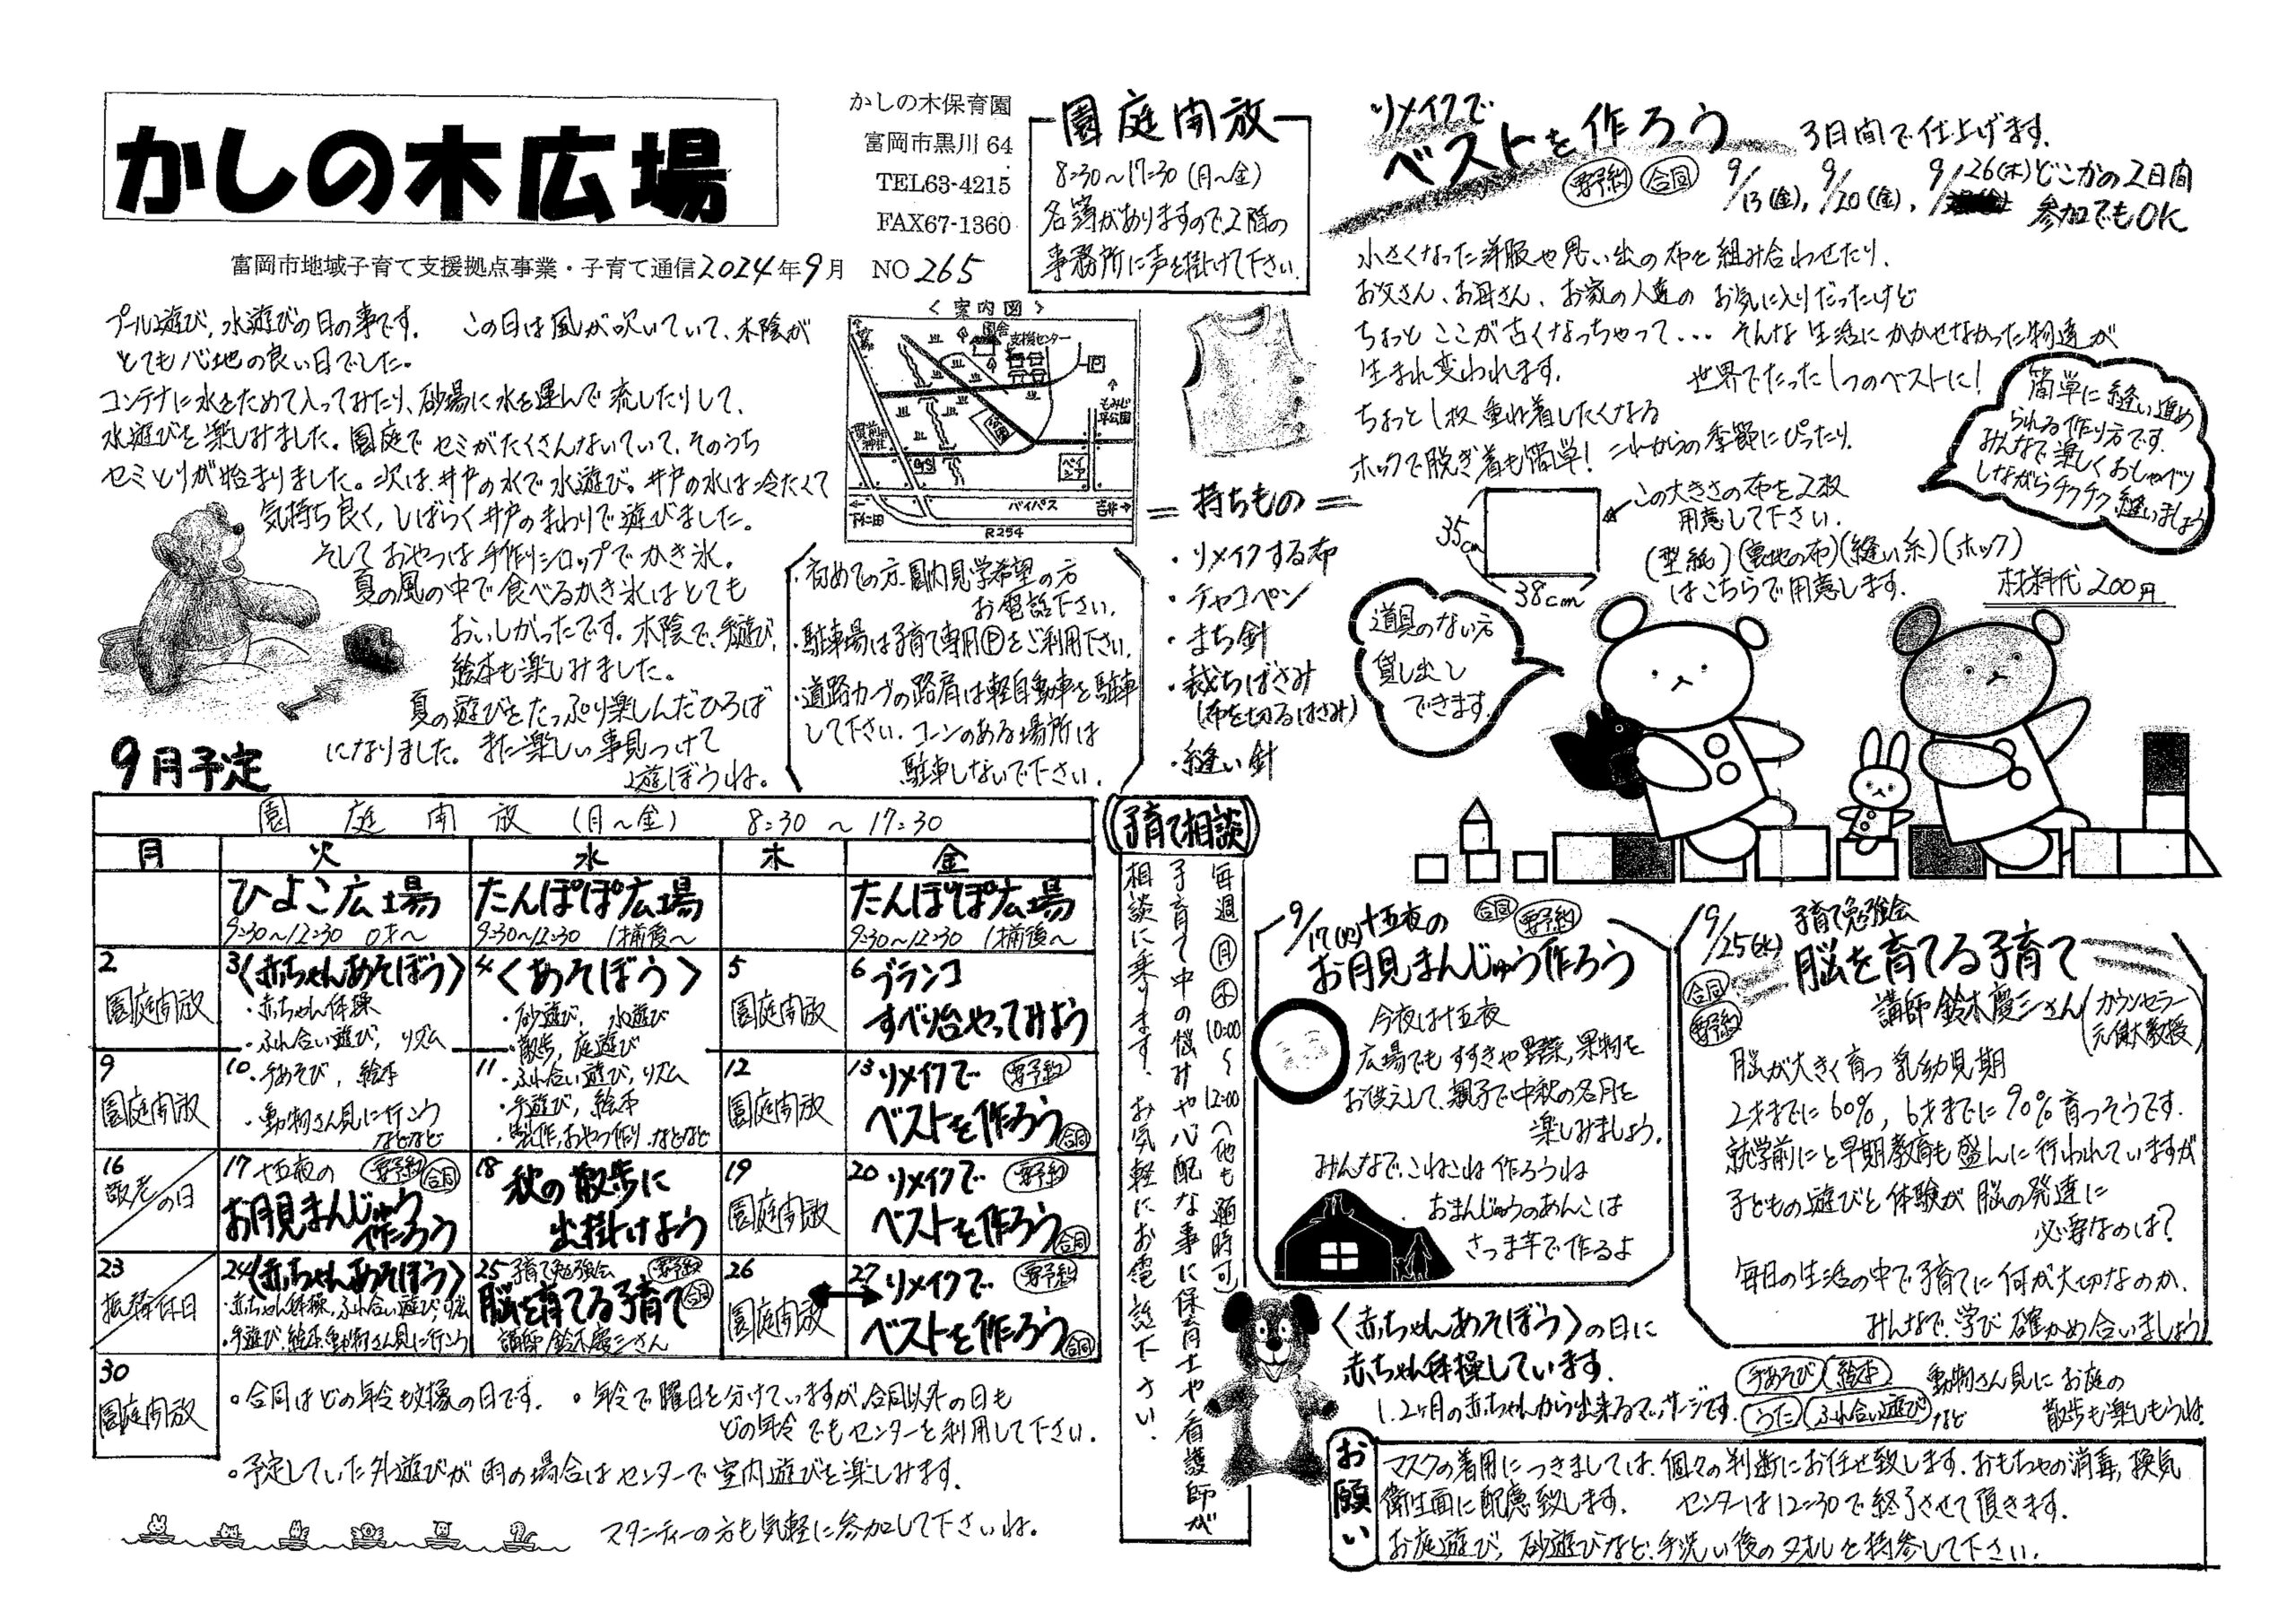 かしの木広場
富岡市地域子育て支援拠点事業・子育て通信2024年9月 NO 265
かしの木保育園
富岡市黒川 64
TEL63-4215
FAX67-1360
園庭開放
8:30～17:30 (月～金)
名簿がありますので、2階の
事務所に声を掛けて下さい。
プール遊び、水遊びの日の事です。 この日は風が吹いていて、木陰が
とても心地の良い日でした。
コンテナに水をためて入ってみたり、砂場に水を運んで流したりして、
水遊びを楽しみました。園庭でセミがたくさんないていて、そのうち
セミとりが始まりました。次は、井戸の水で水遊び。井戸の水は冷たくて
気持ち良く、しばらく井戸のまわりで遊びました。
そしておやつは手作りシロップでかき氷。
夏の風の中で食べるかき氷はとても
おいしかったです。木陰で、手遊び、
絵本も楽しみました。
夏の遊びをたっぷり楽しんだひろば
になりました。また楽しい事見つけて
遊ぼうね。
＜案内図＞
園舎
支援センター
もみじ平公園
貫前神社
GS
ベイシア
バイパス
下仁田
吉井→
R254
・初めての方、園内見学希望の方
お電話下さい。
・駐車場は子育て専用Ⓟをご利用下さい。
・道路カーブの路肩は軽自動車を駐車
して下さい。コーンのある場所は
駐車しないで下さい。
リメイクで
ベストを作ろう 3日間で仕上げます。
要予約 合同 9/13(金), 9/20(金), 9/26(木)どこかの2日間
参加でもOK
小さくなった洋服や思い出の布を組み合わせたり、
お父さん、お母さん、お家の人達の お気に入りだったけど
ちょっと ここが古くなっちゃって... そんな生活にかかせなかった物達が
生まれ変われます。 世界でたった1つのベストに!
ちょっと1枚重ね着したくなる
ホックで脱ぎ着も簡単! これからの季節にぴったり。
簡単に縫い進め
られる作り方です。
みんなで楽しくおしゃべり
しながらチクチク縫いましょう
＝持ちもの＝
・リメイクする布
・チャコペン
・まち針
・裁ちばさみ
(布を切るはさみ)
・縫い針
35cm
38cm
この大きさの布を2枚
用意して下さい。
(型紙)(裏地の布)(縫い糸)(ホック)
はこちらで用意します。
材料代 200円
道具のない方
貸し出し
できます。
9月予定
園庭開放 (月～金) 8:30 ～ 17:30
月 火 水 木 金
ひよこ広場 たんぽぽ広場 たんぽぽ広場
9:30～12:30 0才～ 9:30～12:30 1才前後～ 9:30～12:30 1才前後～
2 園庭開放
3〈赤ちゃんあそぼう〉
・赤ちゃん体操
・ふれ合い遊び、リズム
4〈あそぼう〉
・砂遊び、水遊び
・散歩、庭遊び
5 園庭開放
6 ブランコ
すべり台やってみよう
9 園庭開放
10 ・手あそび、絵本
・動物さん見に行こう
などなど
11 ・ふれ合い遊び、リズム
・手遊び、絵本
・製作、おやつ作り、などなど
12 園庭開放
13 リメイクで 要予約
ベストを作ろう 合同
16 敬老の日
17 十五夜の 要予約 合同
お月見まんじゅう
作ろう
18 秋の散歩に
出掛けよう
19 園庭開放
20 リメイクで 要予約
ベストを作ろう 合同
23 振替休日
24〈赤ちゃんあそぼう〉
・赤ちゃん体操、ふれ合い遊び、リズム
・手遊び、絵本、動物さん見に行こう
25 子育て勉強会 要予約
脳を育てる子育て 合同
講師 鈴木慶三さん
26 園庭開放
27 リメイクで 要予約
ベストを作ろう 合同
30 園庭開放
○合同はどの年令も対象の日です。 ○年令で曜日を分けていますが、合同以外の日も
どの年令でもセンターを利用して下さい。
○予定していた外遊びが雨の場合はセンターで室内遊びを楽しみます。
マタニティーの方も気軽に参加して下さいね。
子育て相談
毎週 月 木 10:00～12:00へ他も随時可
子育て中の悩みや心配な事に保育士や看護師が
相談に乗ります。お気軽にお電話下さい。
9/17(火)十五夜の 合同 要予約
お月見まんじゅう作ろう
今夜は十五夜
広場でもすすきや野菜、果物を
お供えして、親子で中秋の名月を
楽しみましょう。
みんなで、こねこね作ろうね
おまんじゅうのあんこは
さつま芋で作るよ
9/25(水) 子育て勉強会
脳を育てる子育て
合同
要予約
講師 鈴木慶三さん(カウンセラー
元健大教授)
脳が大きく育つ乳幼児期
2才までに60%, 6才までに90%育つそうです。
就学前にと早期教育も盛んに行われていますが
子どもの遊びと体験が脳の発達に
必要なのは?
毎日の生活の中で子育てに何が大切なのか、
みんなで、学び確かめ合いましょう
〈赤ちゃんあそぼう〉の日に
赤ちゃん体操しています。
1、2ヶ月の赤ちゃんから出来るマッサージです。
手あそび 絵本 動物さん見にお庭の
うた ふれ合い遊び など 散歩も楽しもうね。
お願い
マスクの着用につきましては、個々の判断にお任せ致します。おもちゃの消毒、換気
衛生面に配慮致します。 センターは12:30で終了させて頂きます。
お庭遊び、砂遊びなど、手洗い後のタオルを持参して下さい。